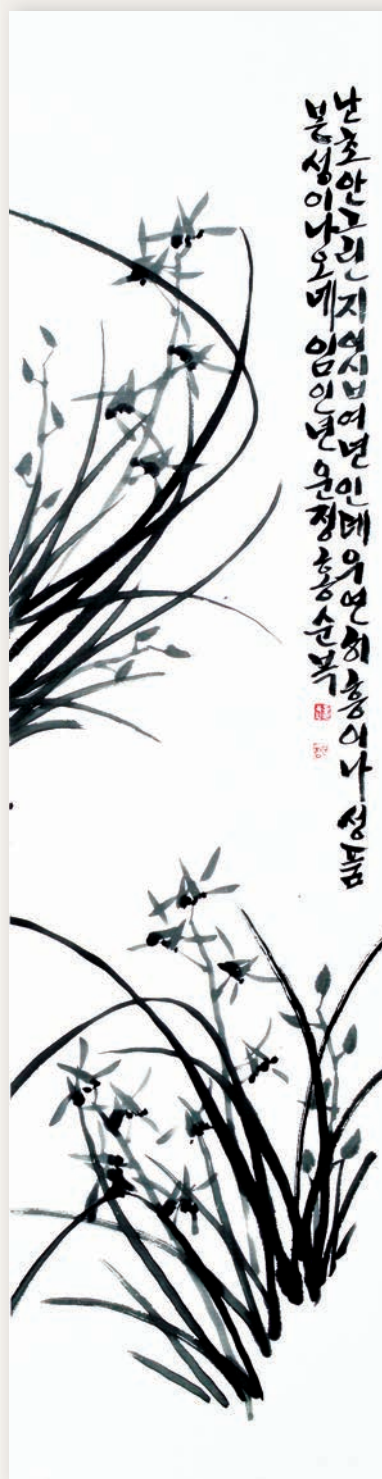 난초안그린지 십여년인데 우연히 흥이나 성품
본성이나오네 임인년 운정 홍순복